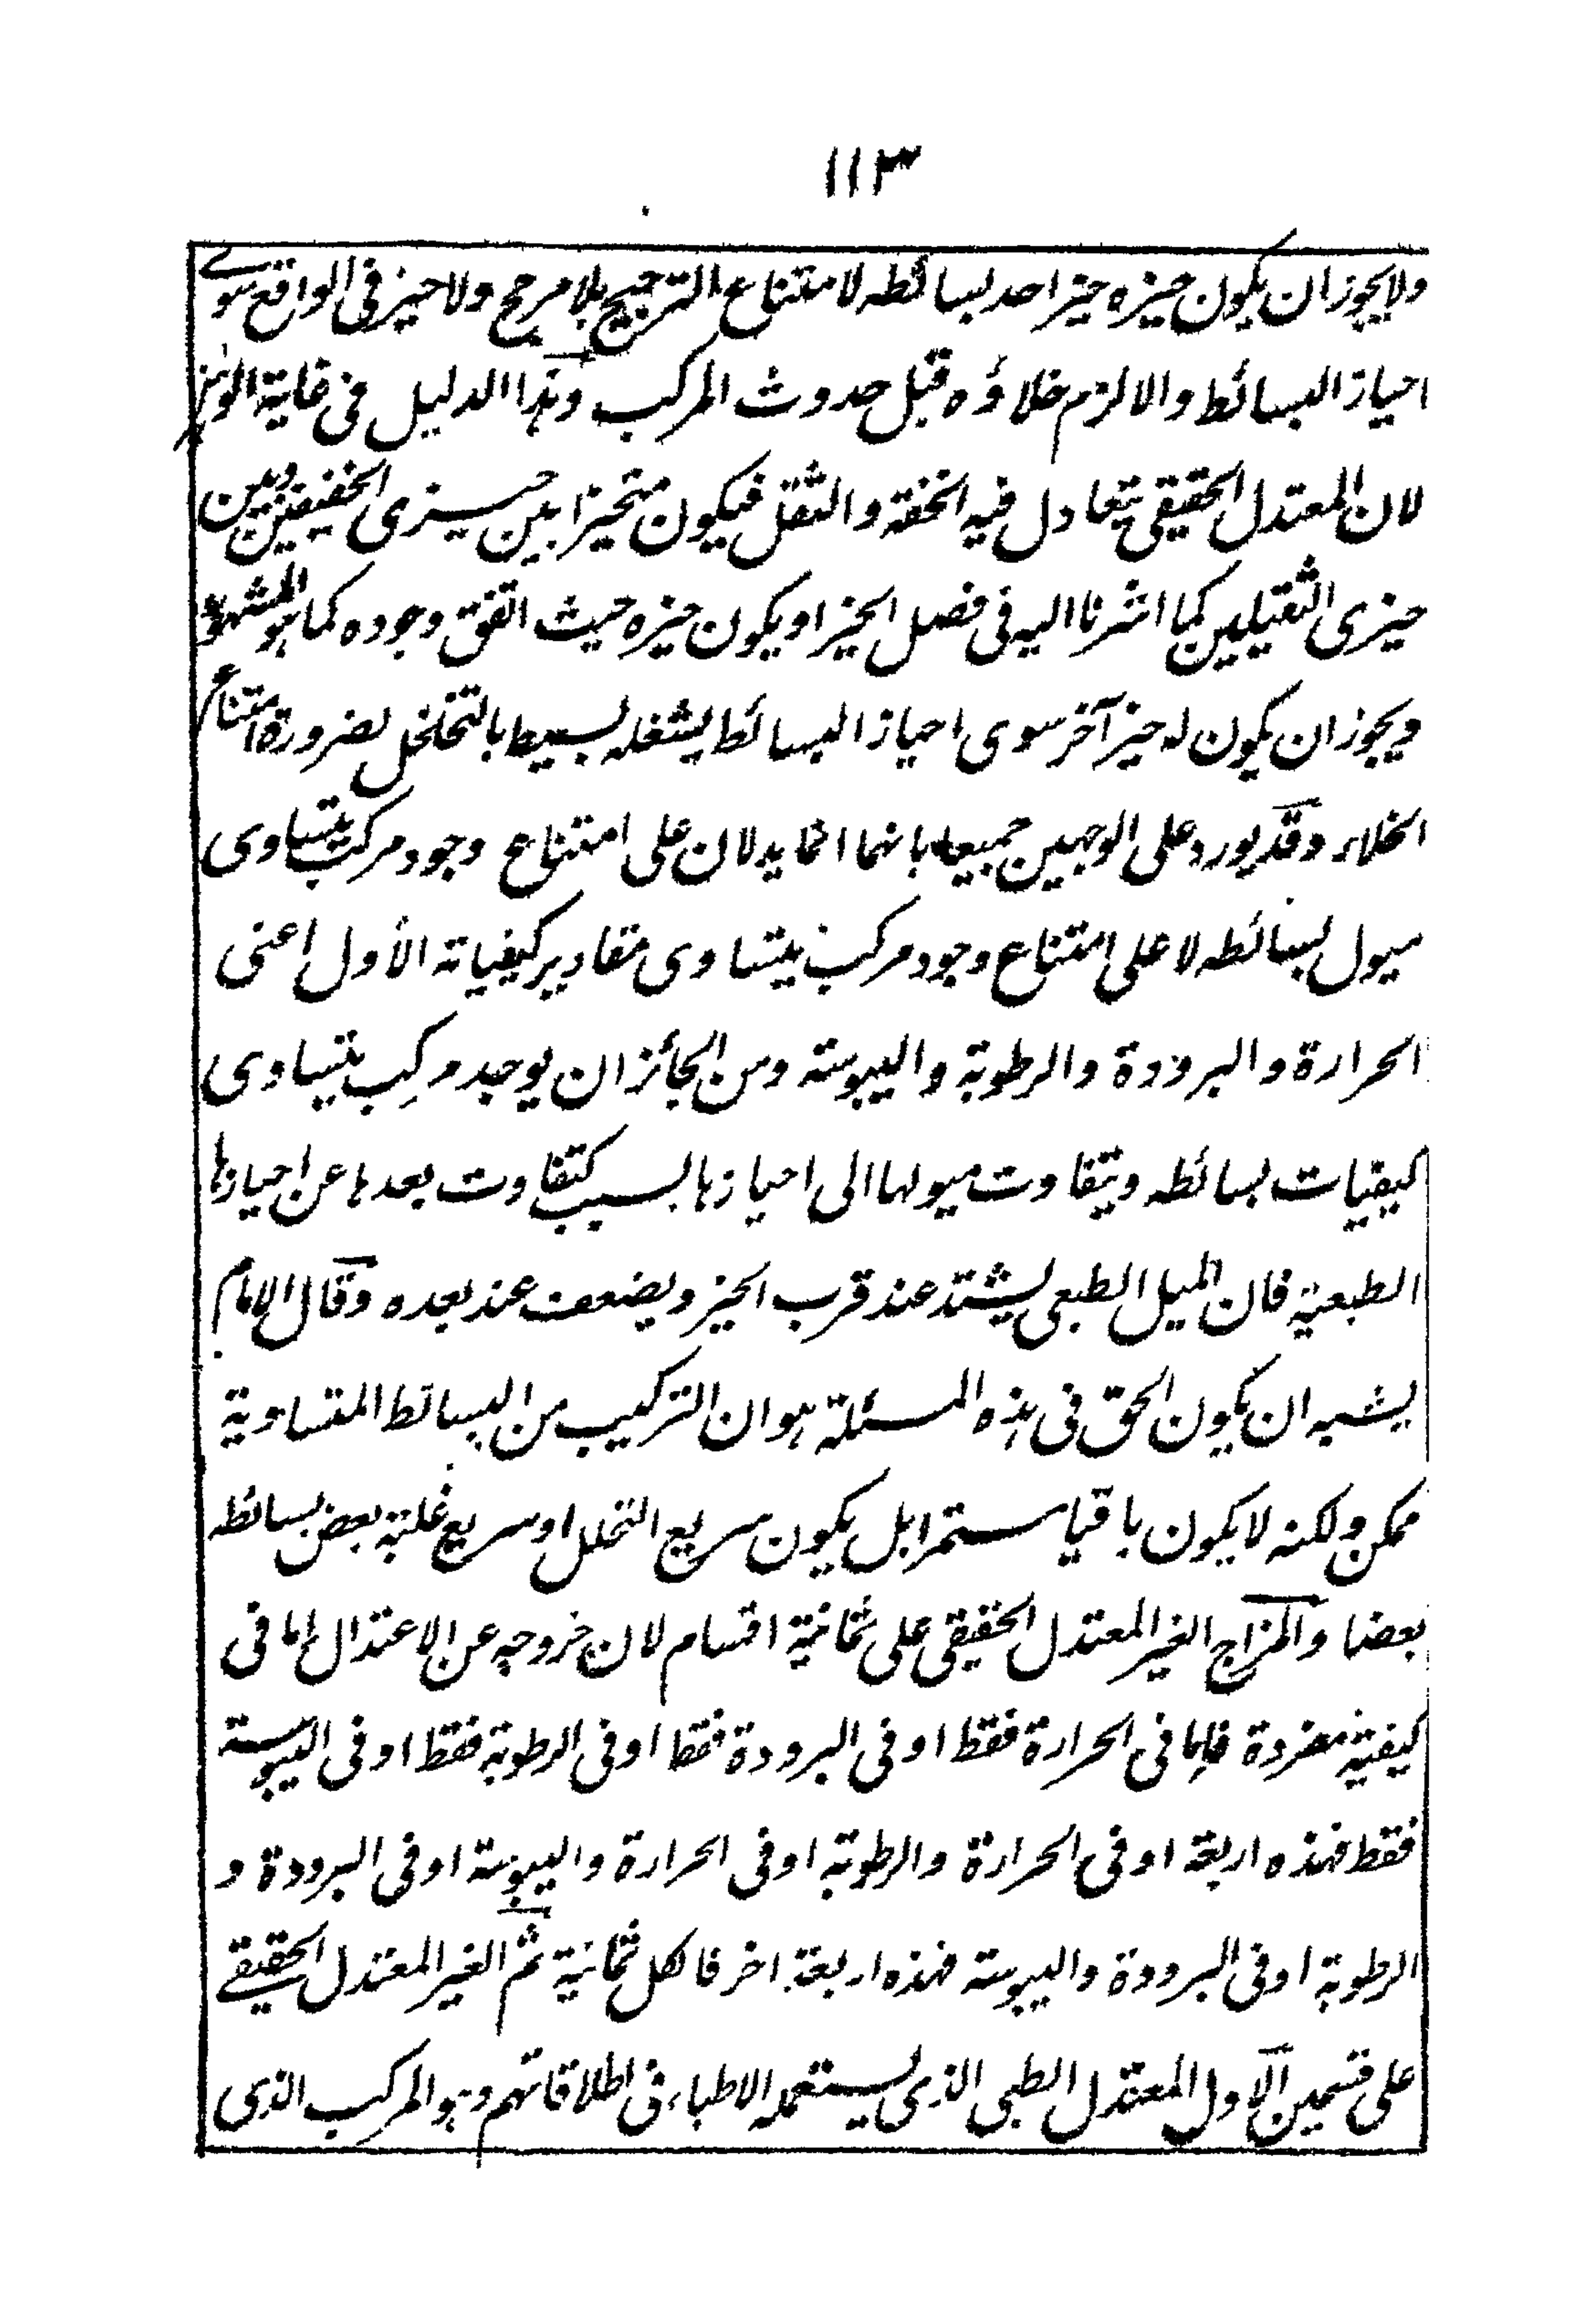 ١١٣
ولا يجوز ان يكون حيزه حيز احد بسائطه لامتناع الترجيح بلا مرجح ولا حيز فى الواقع سوے
احياز البسائط والا لزم خلاؤه قبل حدوث المركب وهذا الدليل فى غاية الوهن
لان المعتدل الحقيقى يتعادل فيه الخفة والثقل فيكون متحيزا بين حيزى الخفيفين وبين
حيزى الثقيلين كما اشرنا اليه فى فصل الحيز او يكون حيزه حيث اتفق وجوده كما هو المشهور
ويجوز ان يكون له حيز آخر سوى احياز البسائط يشغله بسيط بالتخلخل لضرورة امتناع
الخلاء وقد يورد على الوجهين جميعا بانهما انما يدلان على امتناع وجود مركب يتساوى
ميول بسائطه لا على امتناع وجود مركب يتساوى مقادير كيفياته الأول اعنى
الحرارة والبرودة والرطوبة واليبوسة ومن الجائز ان يوجد مركب يتساوى
كيفيات بسائطه ويتفاوت ميولها الى احيازها بسبب تفاوت بعدها عن احيازها
الطبعية فان الميل الطبعى يشتد عند قرب الحيز ويضعف عند بعده وقال الامام
يشبه ان يكون الحق فى هذه المسئلة هو ان التركيب من البسائط المتساوية
ممكن ولكنه لا يكون باقيا مستمرا بل يكون سريع التحلل او سريع غلبة بعض بسائطه
بعضا والمزاج الغير المعتدل الحقيقى على ثمانية اقسام لان خروجه عن الاعتدال اما فى
كيفية مفردة فاما فى الحرارة فقط او فى البرودة فقط او فى الرطوبة فقط او فى اليبوسة
فقط فهذه اربعة او فى الحرارة والرطوبة او فى الحرارة واليبوسة او فى البرودة و
الرطوبة او فى البرودة واليبوسة فهذه اربعة اخر فالكل ثمانية ثم الغير المعتدل الحقيقے
على قسمين الاول المعتدل الطبى الذى يستعمله الاطباء فى اطلاقاتهم وهو المركب الذى